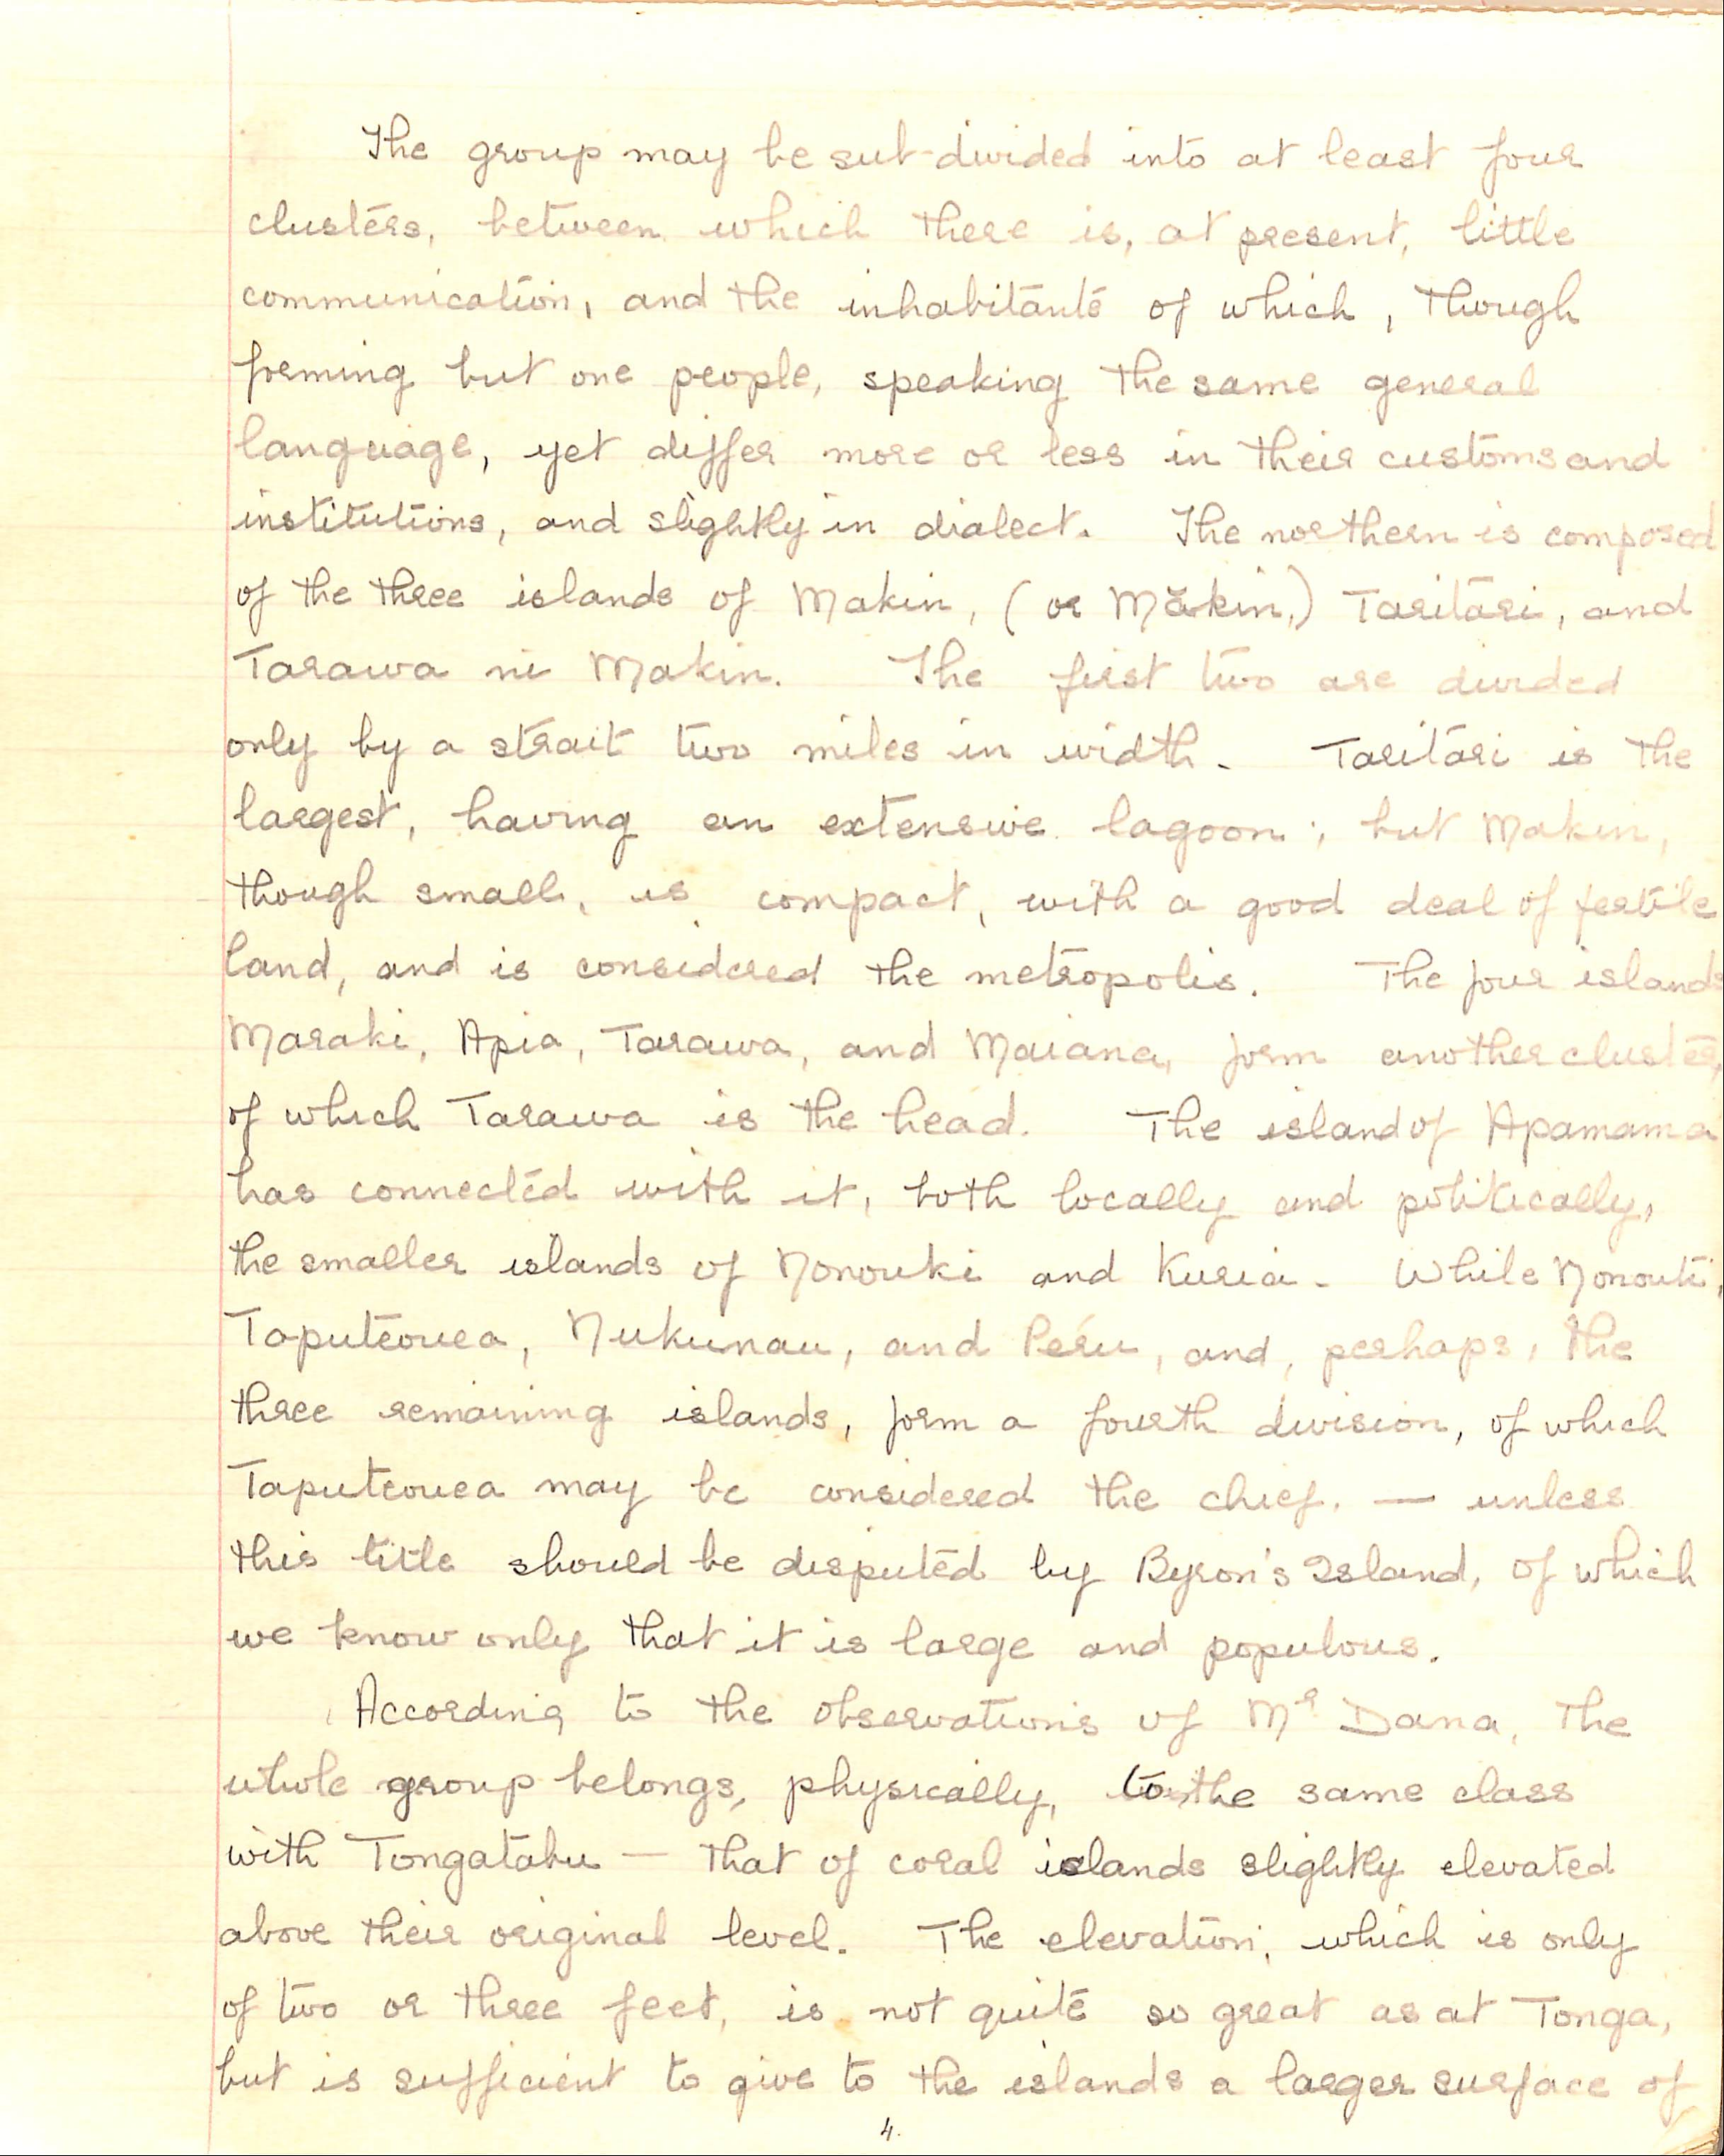 The group may be sub-divided into at least four
clusters, between which there is, at present, little
communication, and the inhabitants of which, though
forming but one people, speaking the same general
language, yet differ more or less in their customs and
institutions, and slightly in dialect. The northern is composed
of the three islands of Makin, (or Măkin,) Taritari, and
Tarawa ni Makin. The first two are divided
only by a strait two miles in width. Taritari is the
largest, having an extensive lagoon; but Makin,
though small, is compact, with a good deal of fertile
land, and is considered the metropolis. The four islands
Maraki, Apia, Tarawa, and Maiana, form another cluster,
of which Tarawa is the head. The island of Apamama
has connected with it, both locally and politically,
the smaller islands of Nonouki and Kuria. While Nonouti,
Taputeouea, Nukunau, and Peru, and, perhaps, the
three remaining islands, form a fourth division, of which
Taputeouea may be considered the chief. — unless
this title should be disputed by Byron's Island, of which
we know only that it is large and populous.
According to the observations of Mr Dana, the
whole group belongs, physically, to the same class
with Tongatabu — that of coral islands slightly elevated
above their original level. The elevation, which is only
of two or three feet, is not quite so great as at Tonga,
but is sufficient to give to the islands a larger surface of
4.